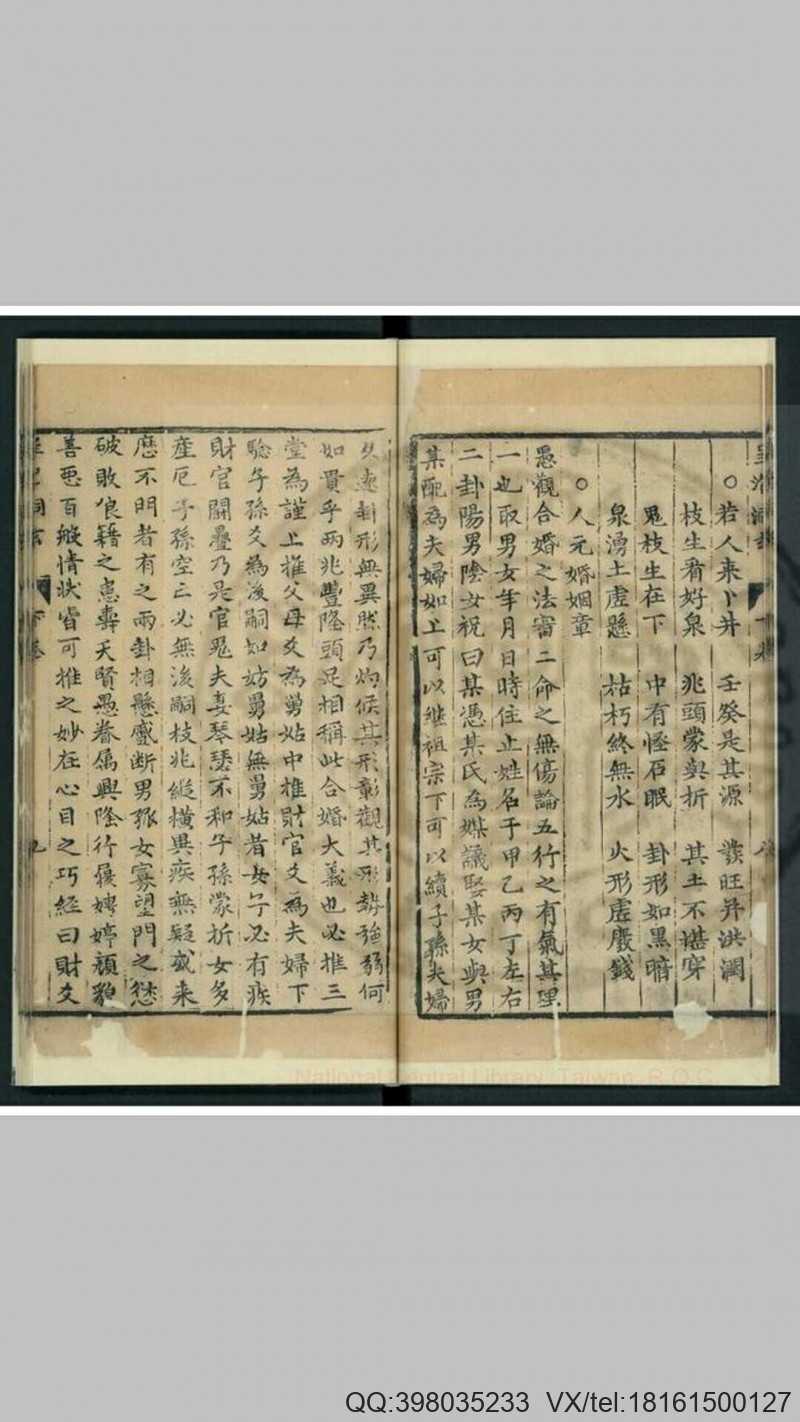 ○若人来卜井 壬癸是其源 發旺井洪澗
枝生看好泉 兆頭蒙與折 其土不堪穿
鬼枝生在下 中有怪石眠 卦形如黑暗
泉湧土虛懸 枯朽終無水 火形虛廢錢
○人元婚姻章
愚觀合婚之法審二命之無傷論五行之有氣其理
一也取男女年月日時住止姓名于甲乙丙丁左右
二卦陽男陰女祝曰某憑某氏為媒議娶某女與男
某配為夫婦如上可以継祖宗下可以續子孫夫婦
卦形無異然乃灼候其形彰觀其形勢強弱何
如貫乎兩兆豐隆頭足相稱此合婚大義也必推三
堂為謹上推父母爻為舅姑中推財官爻為夫婦下
驗子孫爻為後嗣如妨舅姑無舅姑者女子必有疾
財官關疊乃是官鬼夫妻琴瑟不和子孫蒙折女多
產厄子孫空亡必無後嗣枝兆縱橫異疾無疑或来
應不門者有之兩卦相懸處断男孤女寡望門之愁
破敗狼籍之患壽夭賢愚眷属興隆行履娉婷顔貌
善悪百般情状皆可推之妙在心目之巧経曰財爻
九
National Central Library, Taiwan, R.O.C
QQ:398035233 VX/tel:18161500127